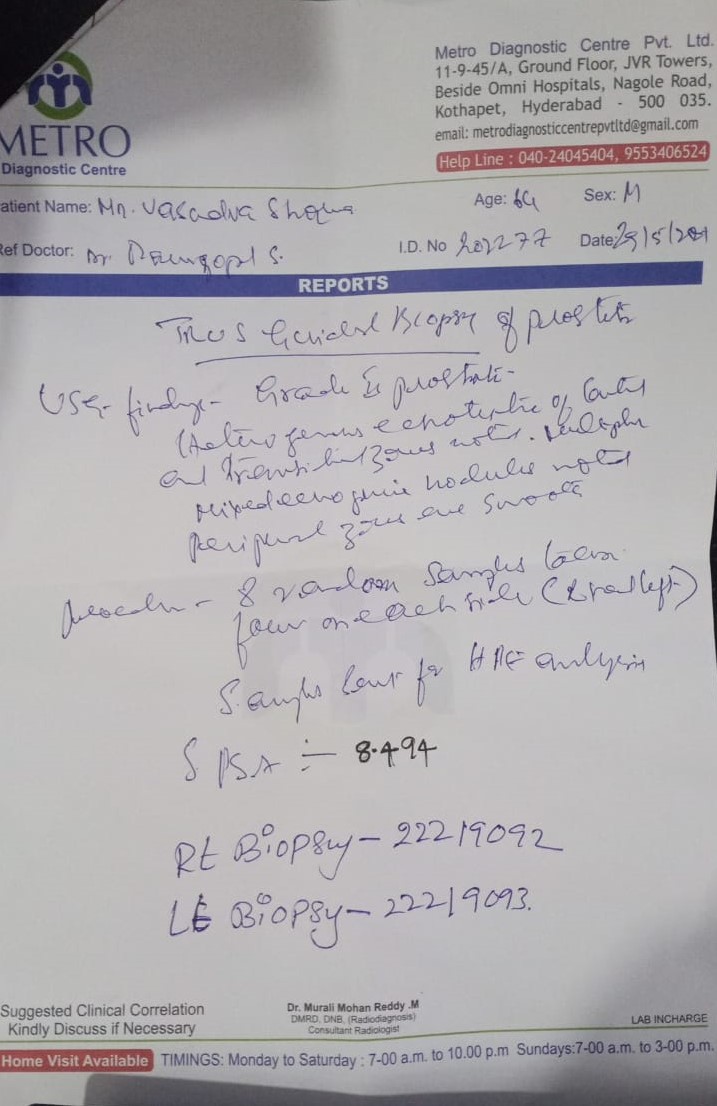 Metro Diagnostic Centre Pvt. Ltd.
11-9-45/A, Ground Floor, JVR Towers,
Beside Omni Hospitals, Nagole Road,
Kothapet, Hyderabad - 500 035.
email: metrodiagnosticcentrepvtltd@gmail.com
Help Line : 040-24045404, 9553406524
METRO
Diagnostic Centre
atient Name: Mr.
Age: 64 Sex: M
Ref Doctor: Dr. S.
I.D. No 202277 Date: 29/5/
REPORTS
TRUS Guided Biopsy of prostate
USG findings - Grade prostate -
(Heterogenous echotexture of Central
and transitional zones noted. Multiple
Mixed echogenic nodules noted
Peripheral zones are smooth
Procedure - 8 random Samples taken
four on each side (Rt and left)
Samples sent for HPE analysis
S PSA :- 8.494
Rt Biopsy - 22219092
Lt Biopsy - 22219093.
Suggested Clinical Correlation
Kindly Discuss if Necessary
Dr. Murali Mohan Reddy .M
DMRD, DNB, (Radiodiagnosis)
Consultant Radiologist
LAB INCHARGE
Home Visit Available TIMINGS: Monday to Saturday : 7-00 a.m. to 10.00 p.m Sundays:7-00 a.m. to 3-00 p.m.